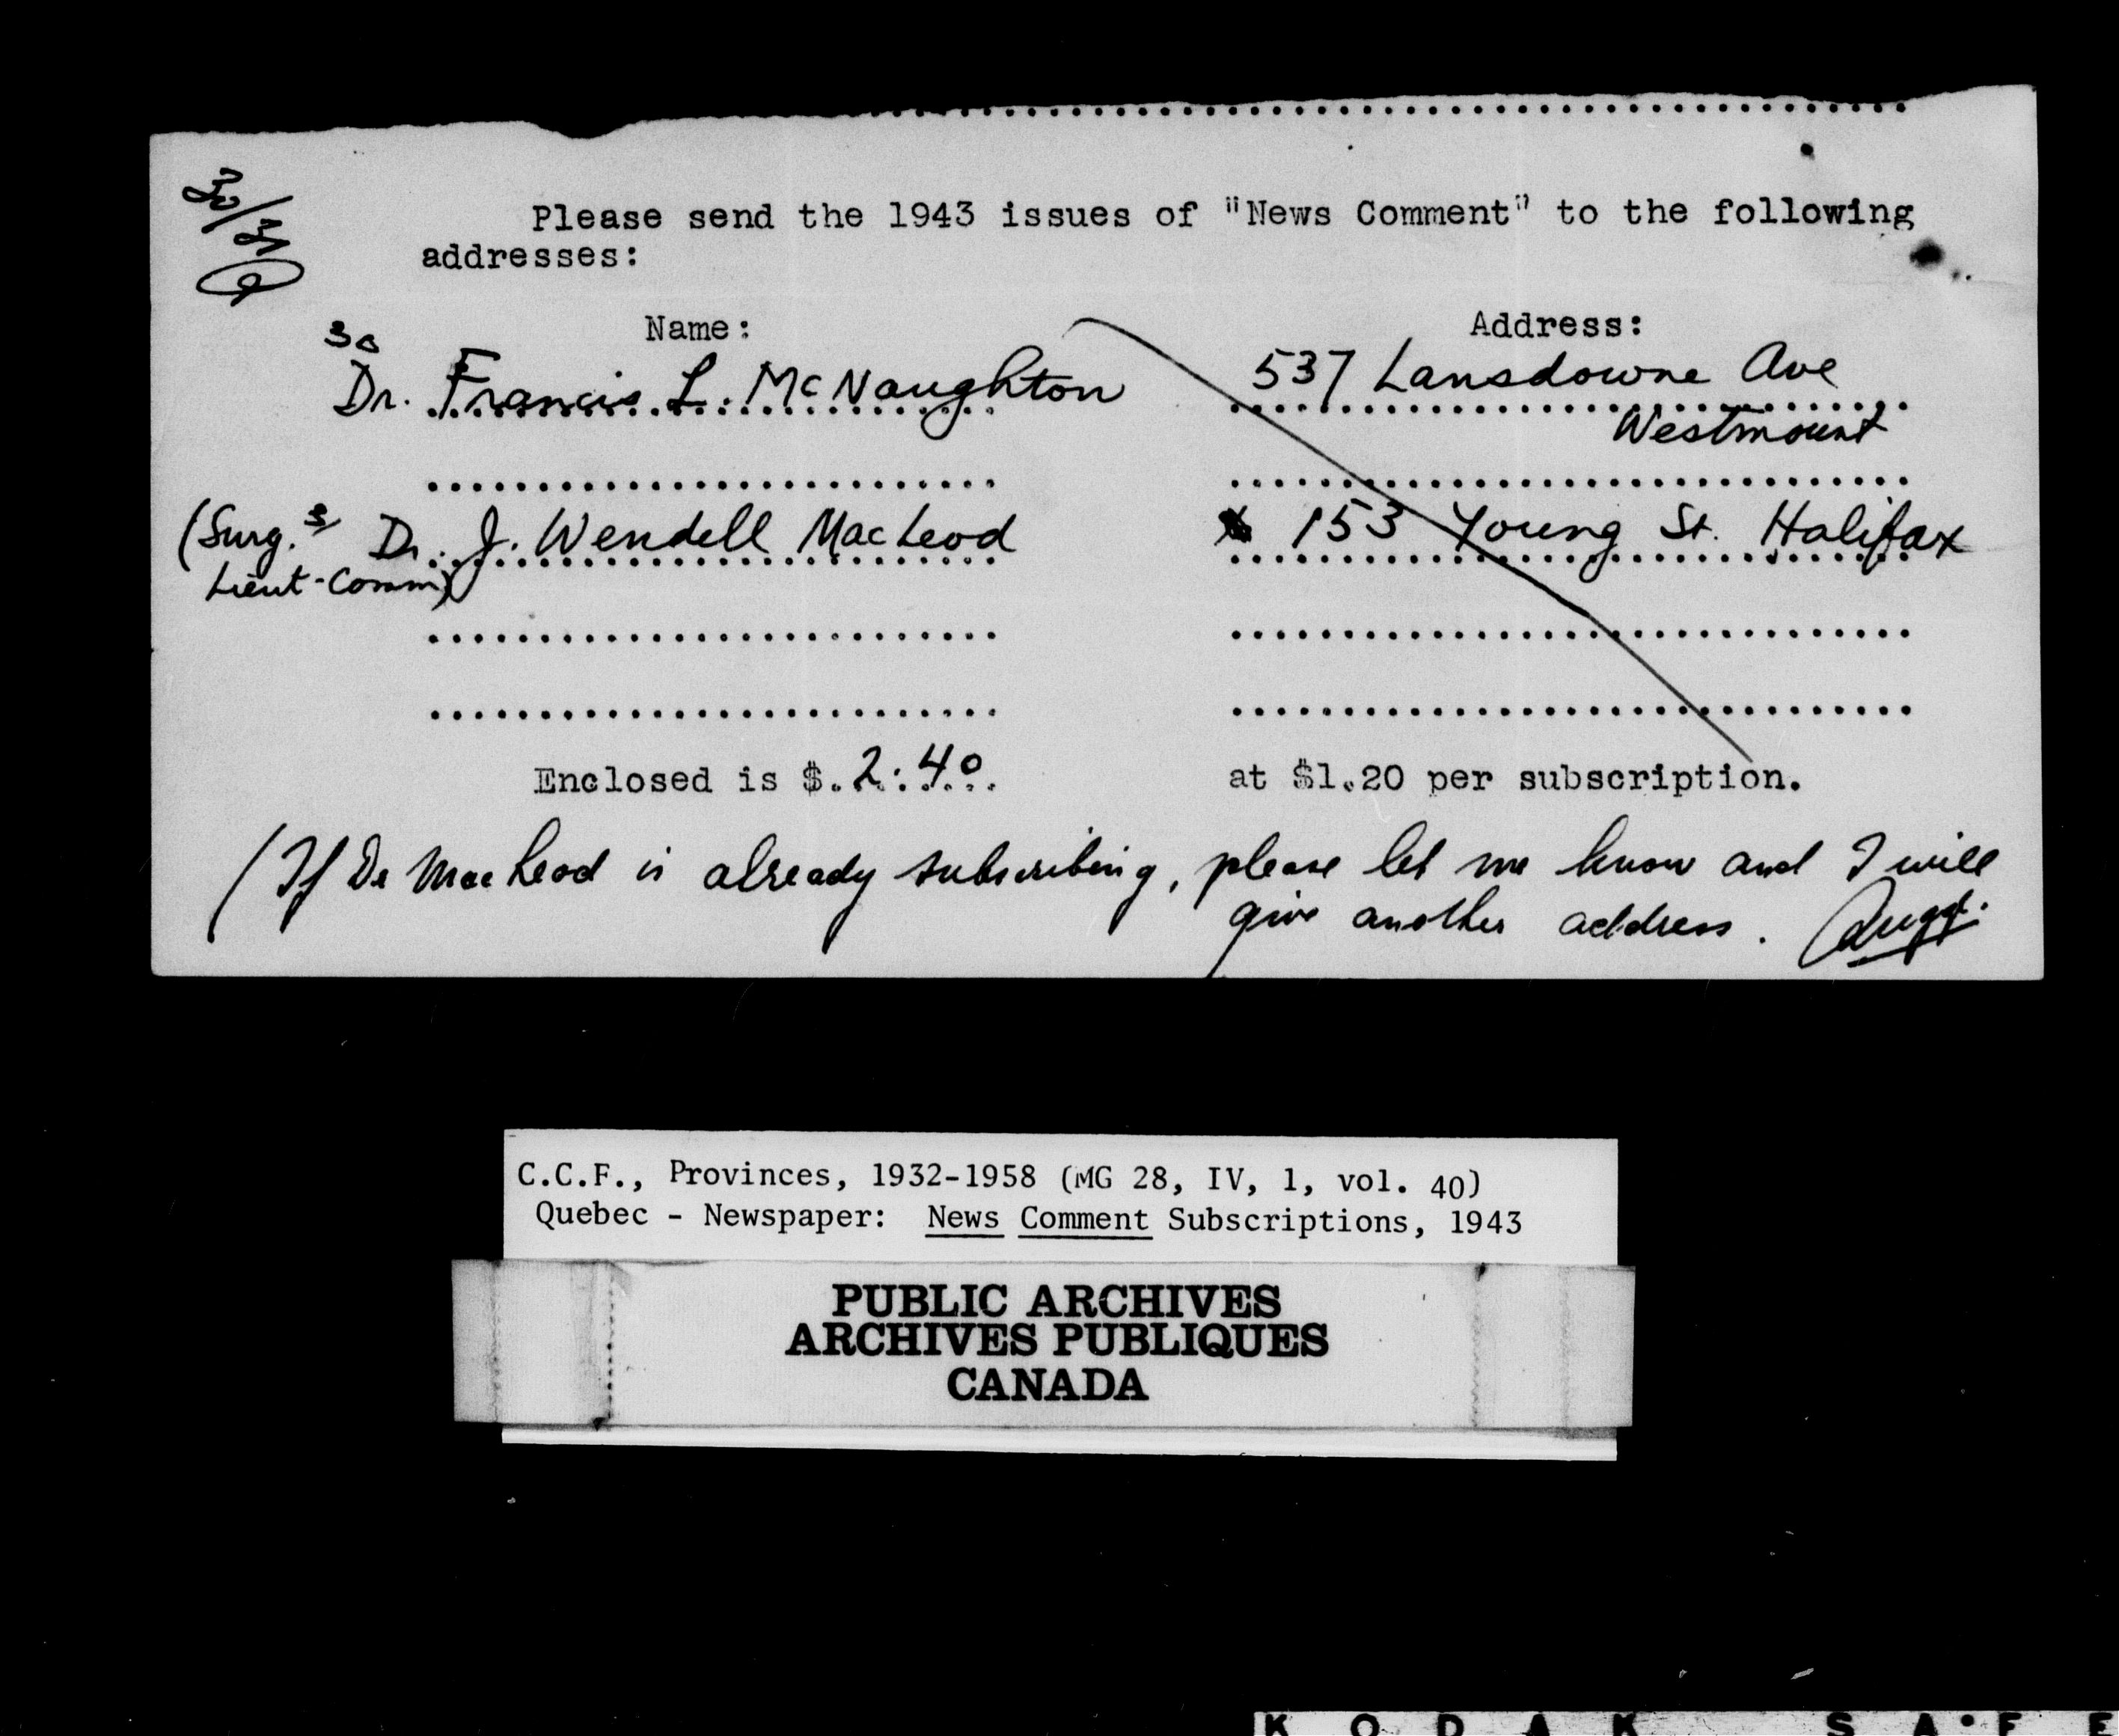 30/31
Please send the 1943 issues of "News Comment" to the following
addresses:
Name: Address:
30
Dr. Francis L. McNaughton 537 Lansdowne Ave
Westmount
(Surg. Dr. J. Wendell MacLeod 153 Young St. Halifax
Lieut-Comm)
Enclosed is $.2.40. at $1.20 per subscription.
(If Dr MacLeod is already subscribing, please let me know and I will
give another address.
C.C.F., Provinces, 1932-1958 (MG 28, IV, 1, vol. 40)
Quebec - Newspaper: News Comment Subscriptions, 1943
PUBLIC ARCHIVES
ARCHIVES PUBLIQUES
CANADA
KODAK SAFE